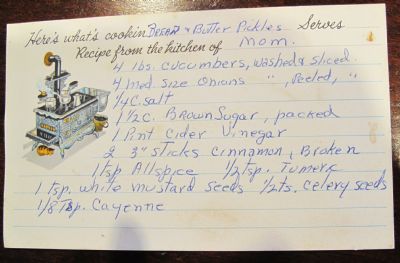 Here's what's cookin Bread & Butter Pickles Serves
Recipe from the kitchen of Mom.
4 lbs. cucumbers, washed & sliced
4 med. size onions " , Peeled, "
1/4 C. salt
1 1/2 C. Brown Sugar, packed
1 Pint Cider Vinegar
2 3" sticks cinnamon, Broken
1 tsp Allspice 1/2 tsp. Tumeric
1 tsp. white mustard seeds 1/2 ts. celery seeds
1/8 Tsp. Cayenne